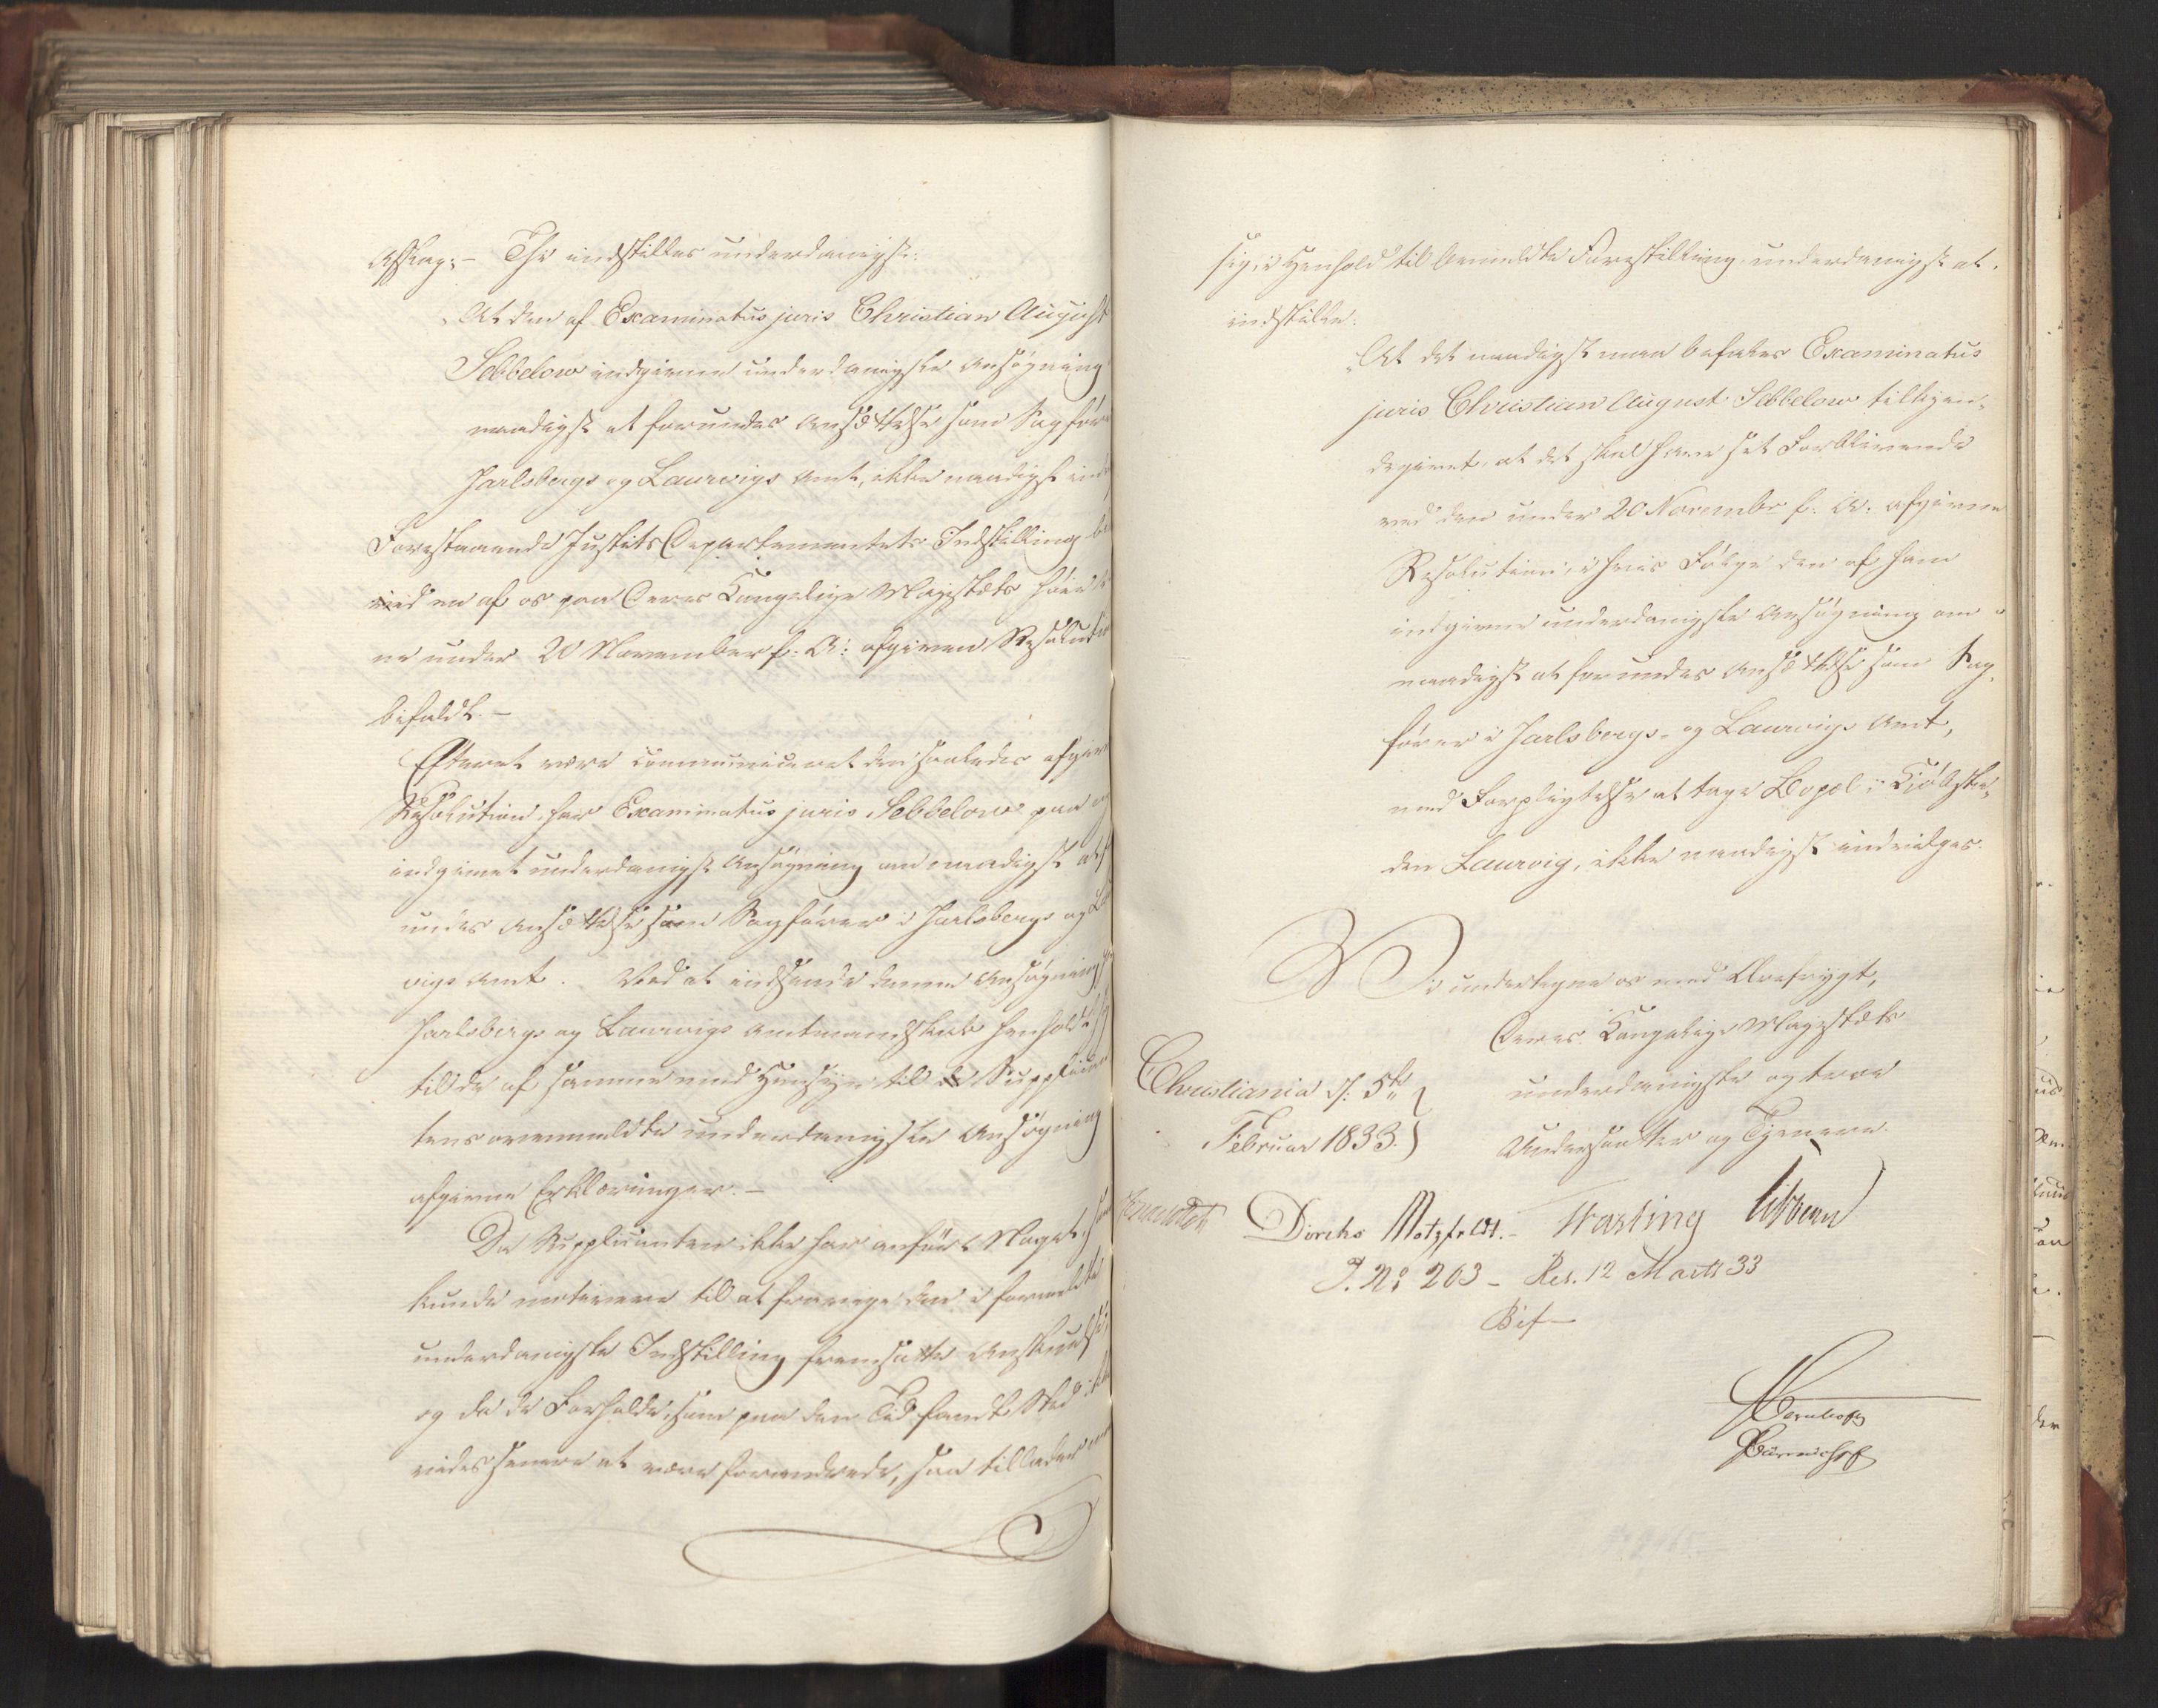 Afslag. – Thi indstilles underdanigst:
"At den af Examinatus juris Christian August
Sebbelow indgivne underdanigste Ansøgning
naadigst at forundes Ansættelse som Sagfører
Jarlsbergs og Laurvigs Amt, ikke naadigst
Forestaaende Justits Departementets Indstilling
ved en af os paa Deres Kongelige Majestæts
ne under 20 November f. A: afgiven Resolution
bifaldt. –
Efteret være communiceret den saaledes
Resolution, har Examinatus juris Sebbelow paa
indgivet underdanigst Ansøgning om naadigst at
undes Ansættelse som Sagfører i Jarlsbergs og
vigs Amt. Ved at indsende denne Ansøgning
Jarlsbergs og Laurvigs Amtmandskab
til de af samme med Hensyn til Supplican
tens ovenmeldte underdanigste Ansøgning
afgivne Erklæringer. –
Da Supplicanten ikke har anført Noget,
kunde motivere til at fravige den i formeldte
underdanigste Indstilling fremsatte Anskuelse,
og da de Forholde, som paa den Tid fandt Sted
vides senere at være forandrede, saa tillader
sig, i Henhold til bemeldte Forestilling underdanigst at
indstille:
"At det naadigst maa befales Examinatus
juris Christian August Sebbelow tilkjen-
degivet, at det skal have sit Forblivende
ved den under 20 Novembr f. A: afgivne
Resolution, i hvis Følge den af ham
indgivne underdanigste Ansøgning om
naadigst at forundes Ansættelse som Sag-
fører i Jarlsbergs- og Laurvigs Amt,
med Forpligtelse at tage Bopæl i Kiøbsta-
den Laurvig, ikke naadigst indvilges.
Vi undertegne os med Ærefrygt,
Deres Kongelige Majestæts
Christiania d: 5te
underdanigste og troe
Februar 1833.
Undersaatter og Tjenere.
Diriks Motzfeldt. – Vogt
J. No 203 – Res. 12 Marts 33
Bif –